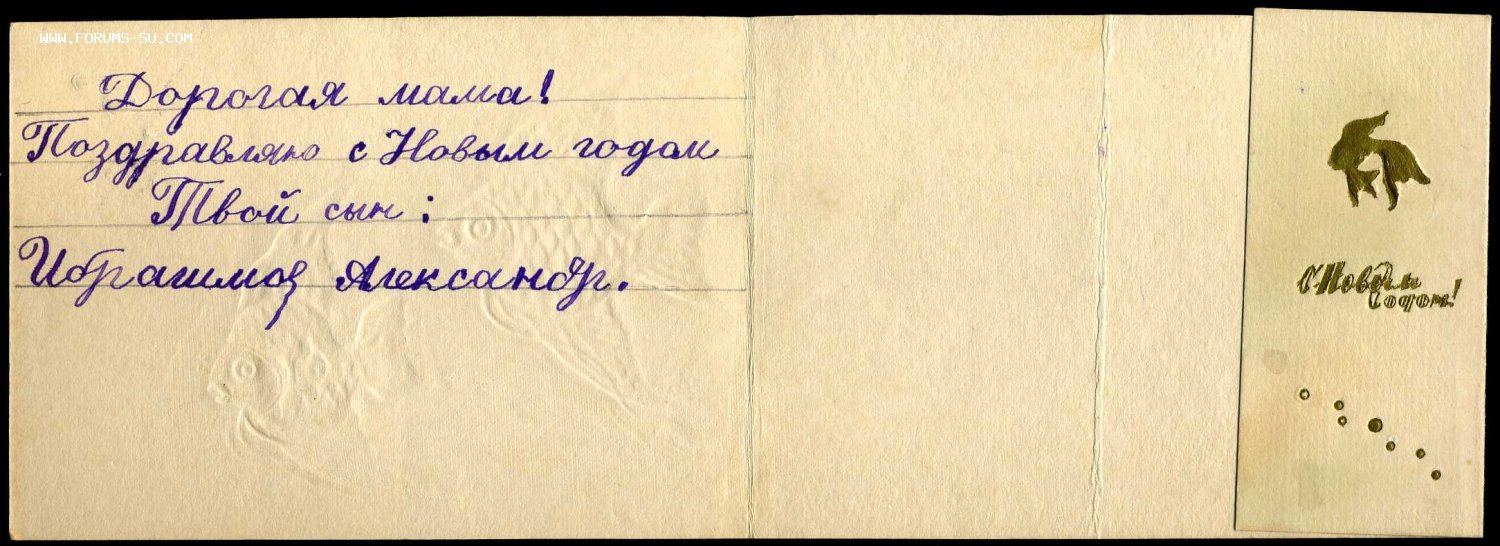 WWW.FORUMS-SU.COM
Дорогая мама!
Поздравляю с Новым годом
Твой сын:
Ибрагимов Александр.
С Новым
годом!